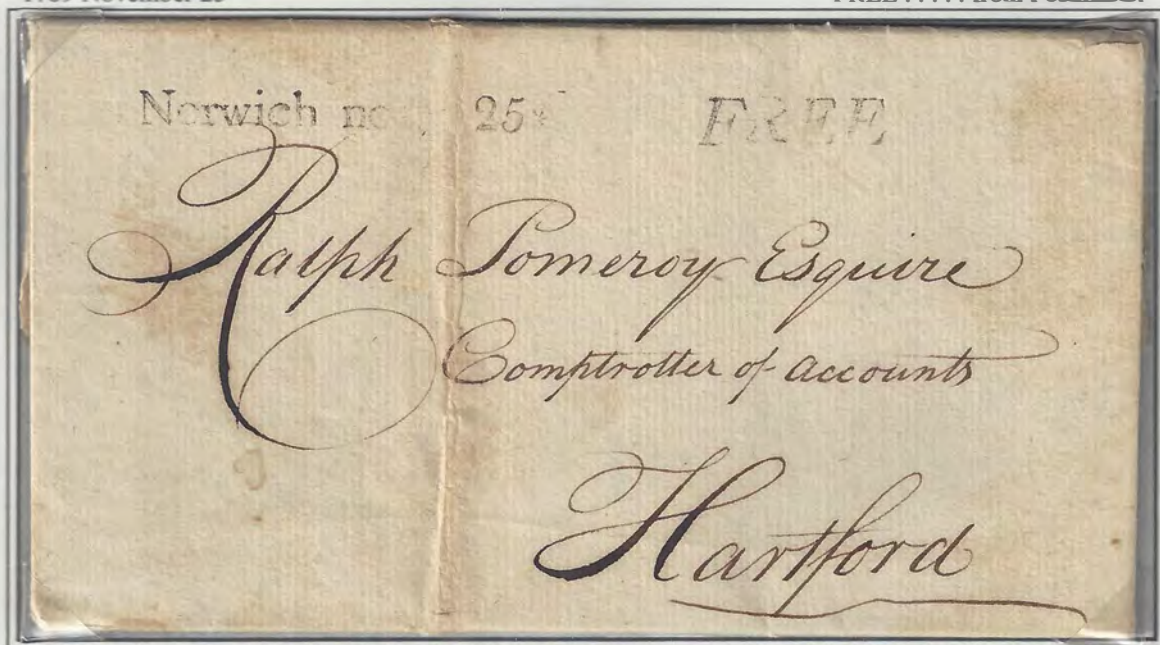 Norwich 25 FREE
Ralph Pomeroy Esquire
Comptroller of accounts
Hartford